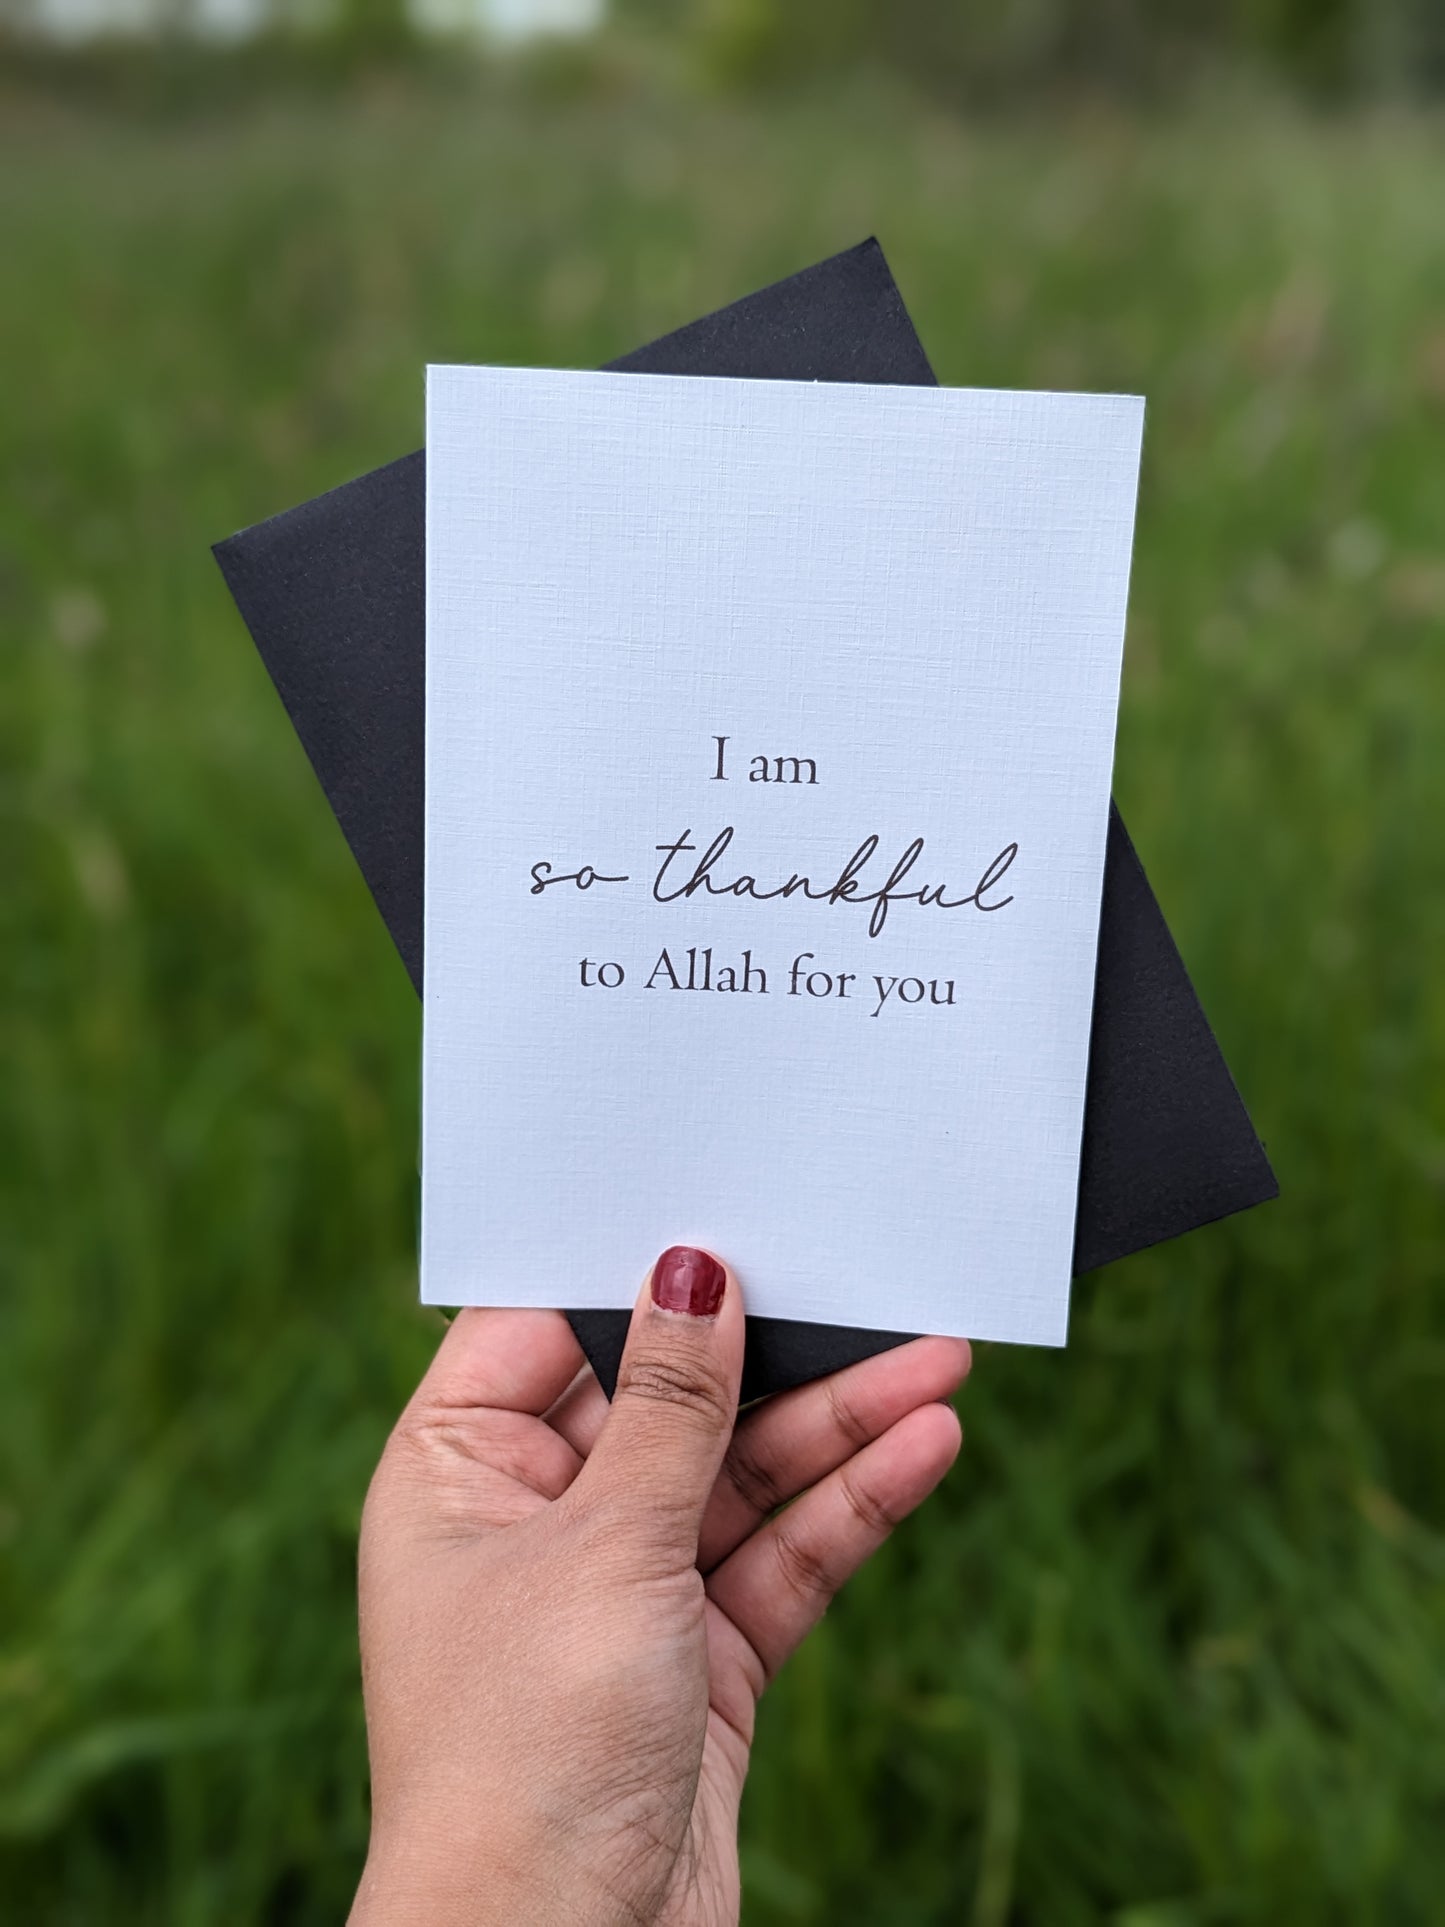 I am
so thankful
to Allah for you